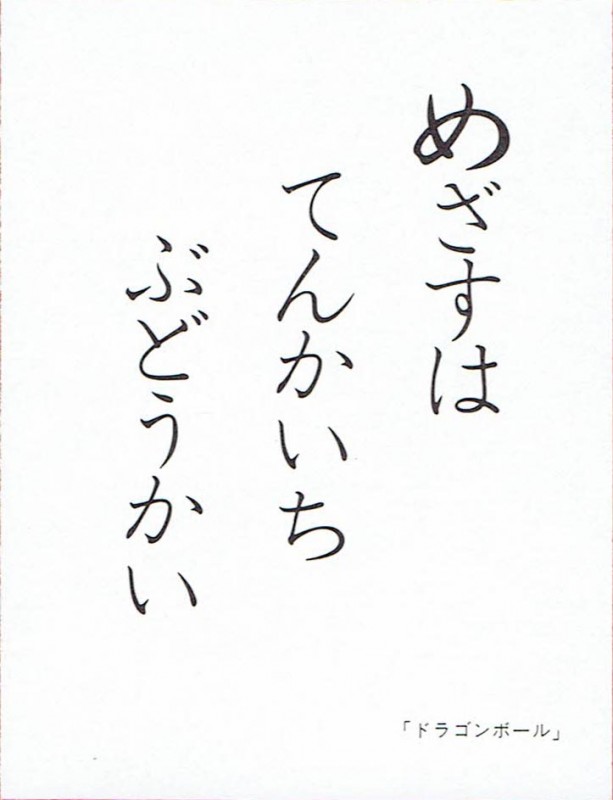 めざすは
てんかいち
ぶどうかい
「ドラゴンボール」